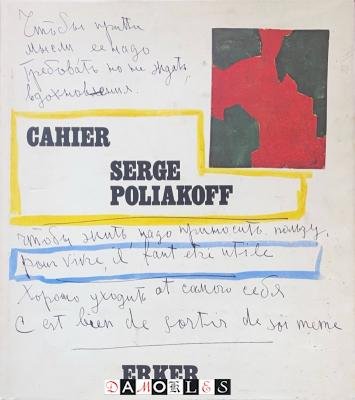 Чтобы прийти
мысли ее надо
требовать но не ждать
вдохновения.
CAHIER
SERGE
POLIAKOFF
чтобы жить надо приносить пользу.
pour vivre, il faut etre utile
Хорошо уходить от самого себя
C est bien de sortir de soi meme
ERKER
DAMOKLES